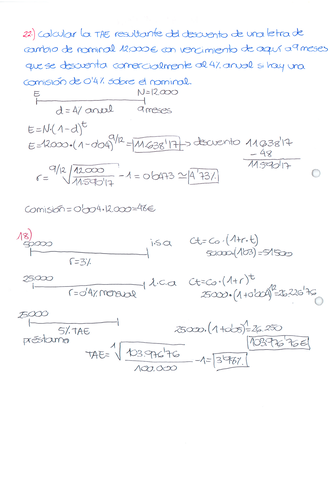 22) Calcular la TAE resultante del descuento de una letra de
cambio de nominal 12000€ con vencimiento de aquí a 9 meses
que se descuenta comercialmente al 4% anual si hay una
comisión de 0'4% sobre el nominal.
E N=12000
d=4% anual 9 meses
E=N·(1-d)^t
E=12000·(1-0'04)^9/12=11.638'17 → descuento 11.638'17
- 48
11.590'17
r= 9/12√12000/11.590'17 -1=0'0473≅4'73%
Comisión=0'004·12.000=48€
18)
50000 i.s.a Ct=C0·(1+r·t)
r=3% 50000·(1'03)=51500
25000 i.c.a Ct=C0·(1+r)^t
r=0'4% mensual 25000·(1+0'004)^12=26.226'76
25000
5% TAE 25000·(1+0'05)^1=26.250
préstamo 103.976'76€
TAE= 1√103.976'76/100.000 -1=3'98%